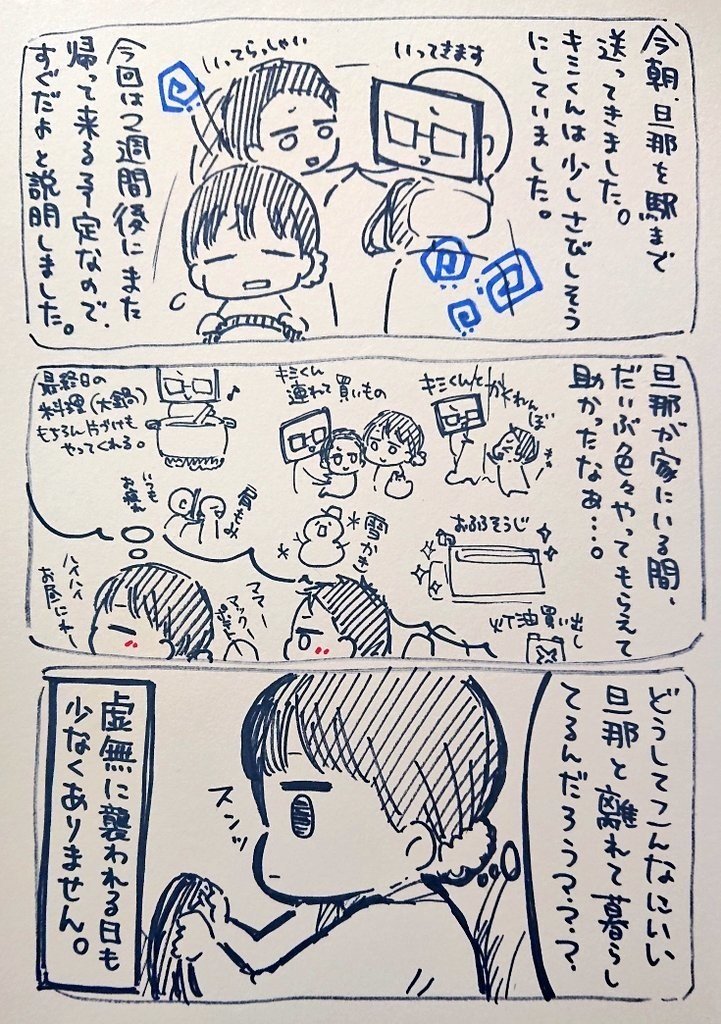 今朝、旦那を駅まで
送ってきました。
キミくんは少しさびしそう
にしていました。
いってきます
いってらっしゃい
今回は2週間後にまた
帰って来る予定なので、
すぐだよと説明しました。
旦那が家にいる間、
だいぶ色々やってもらえて
助かったなぁ…。
キミくんとかくれんぼ
キミくん
連れて買いもの
最終日の
料理(大鍋)
もちろん片づけも
やってくれる。
おふろそうじ
雪かき
肩もみ
いつも
お疲れ
灯油買い出し
ママー
マックー
ハイハイ
お昼にねー
どうしてこんなにいい
旦那と離れて暮らし
てるんだろう???
スンッ
虚無に襲われる日も
少なくありません。